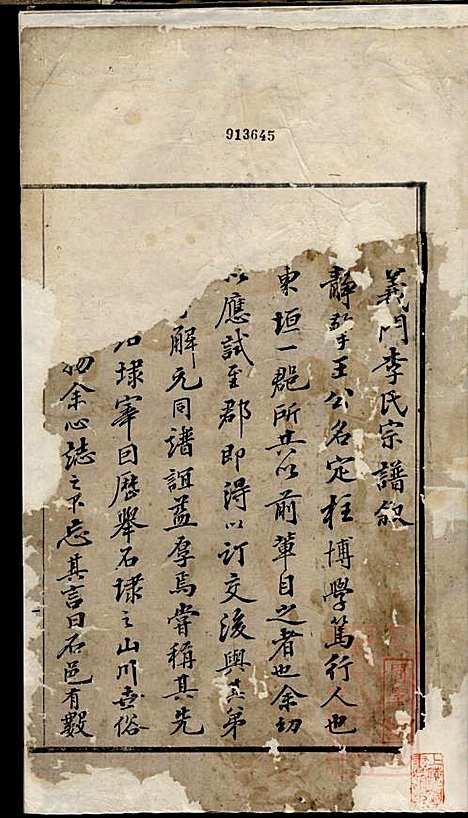 913645
義門李氏宗譜敘
靜 王公名定柱博學篤行人也
東垣一郡所共以前輩目之者也余幼
以應試至郡即得以訂交後與其弟
解元同譜誼益厚焉嘗稱其先
石埭宰回歷舉石埭之山川土俗
余心誌之不忘其言曰石邑有數